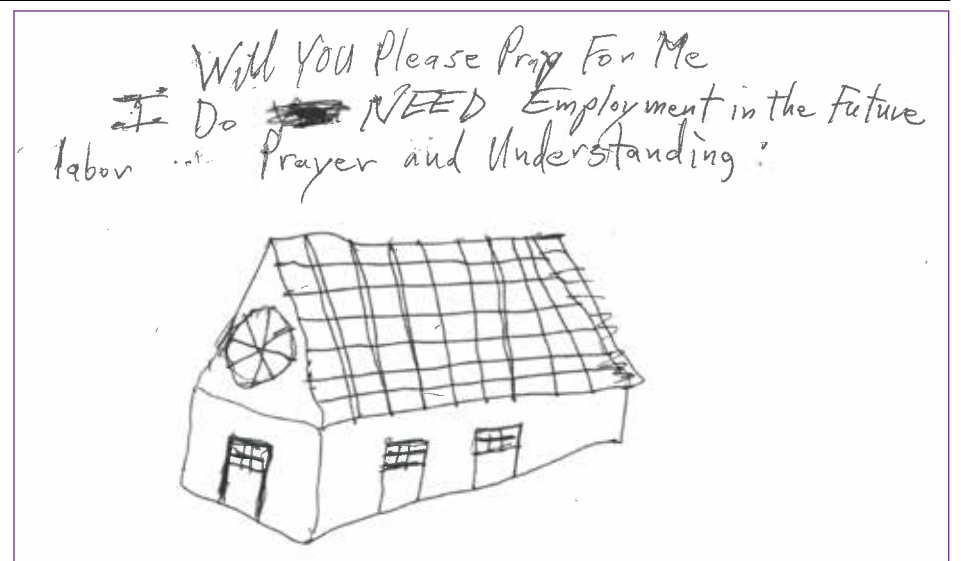 Will YOU Please Pray For Me
I Do NEED Employment in the Future
labor ... Prayer and Understanding :